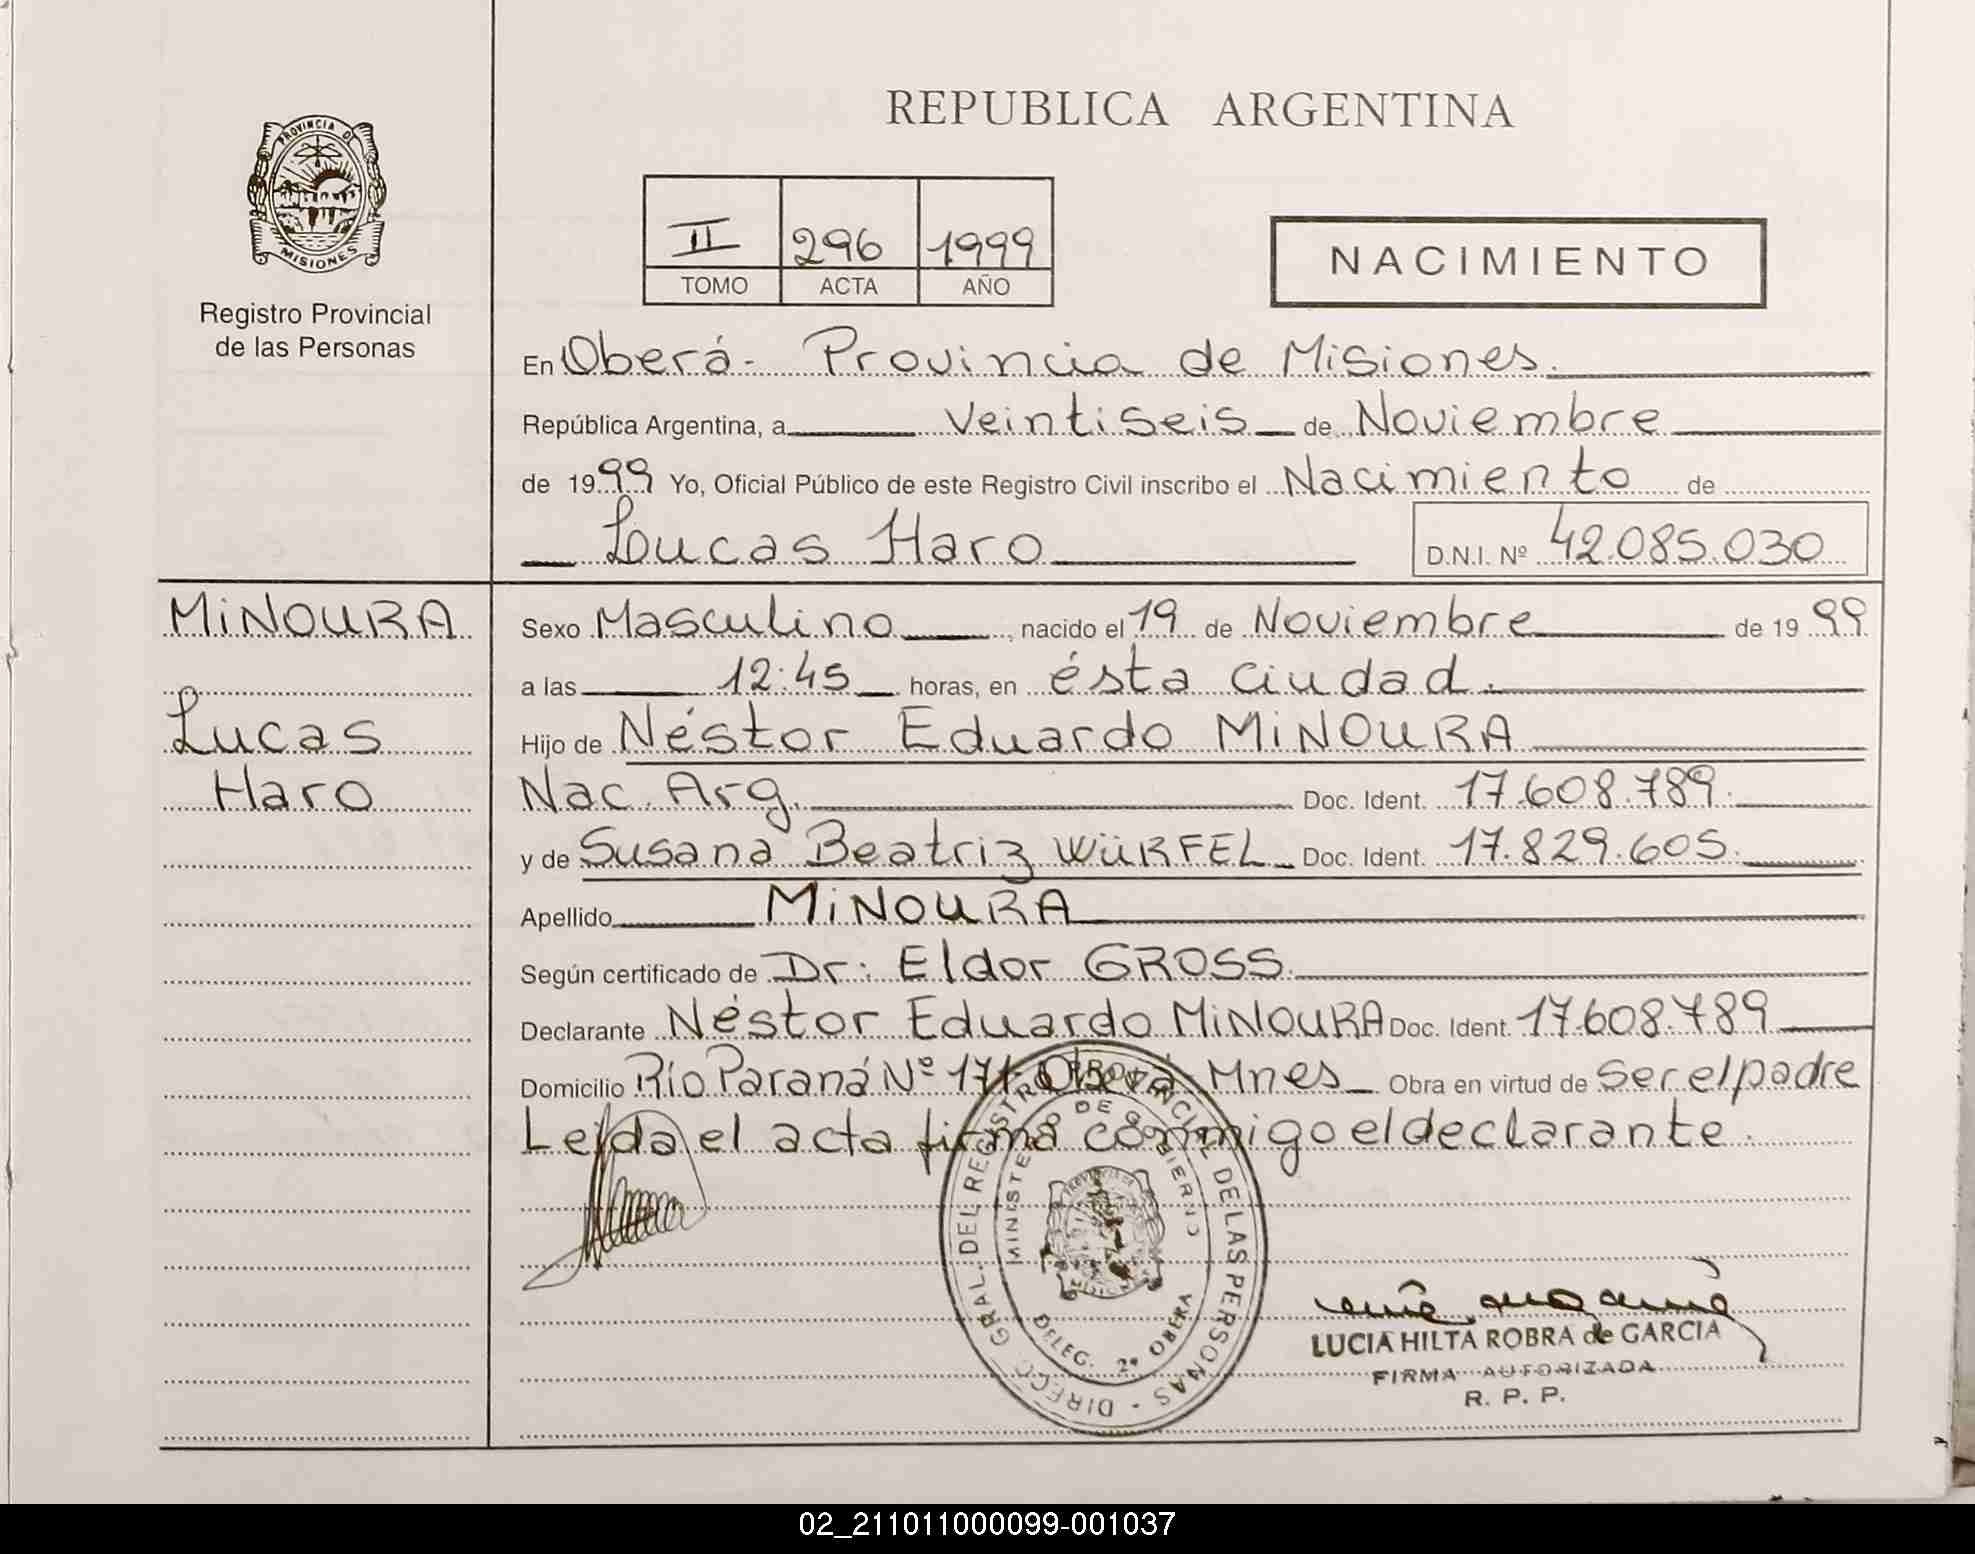 REPUBLICA ARGENTINA
PROVINCIA DE
MISIONES
Registro Provincial
de las Personas
II 296 1999
TOMO ACTA AÑO
NACIMIENTO
En Oberá - Provincia de Misiones.
República Argentina, a Veintiseis de Noviembre
de 1999 Yo, Oficial Público de este Registro Civil inscribo el Nacimiento de
Lucas Haro D.N.I. Nº 42.085.030
MINOURA
Lucas
Haro
Sexo Masculino, nacido el 19 de Noviembre de 1999
a las 12:45 horas, en ésta ciudad.
Hijo de Néstor Eduardo MINOURA
Nac. Arg. Doc. Ident. 17.608.789.
y de Susana Beatriz WÜRFEL Doc. Ident. 17.829.605.
Apellido MINOURA
Según certificado de Dr: Eldor GROSS.
Declarante Néstor Eduardo MINOURA Doc. Ident. 17.608.789
Domicilio Río Paraná Nº 171 Oberá Mnes Obra en virtud de ser el padre
Leída el acta firma conmigo el declarante.
DIRECC. GRAL. DEL REGISTRO PROVINCIAL DE LAS PERSONAS -
MINISTERIO DE GOBIERNO
DELEG. 2ª OBERA
LUCIA HILTA ROBRA de GARCIA
FIRMA AUTORIZADA
R. P. P.
02_211011000099-001037